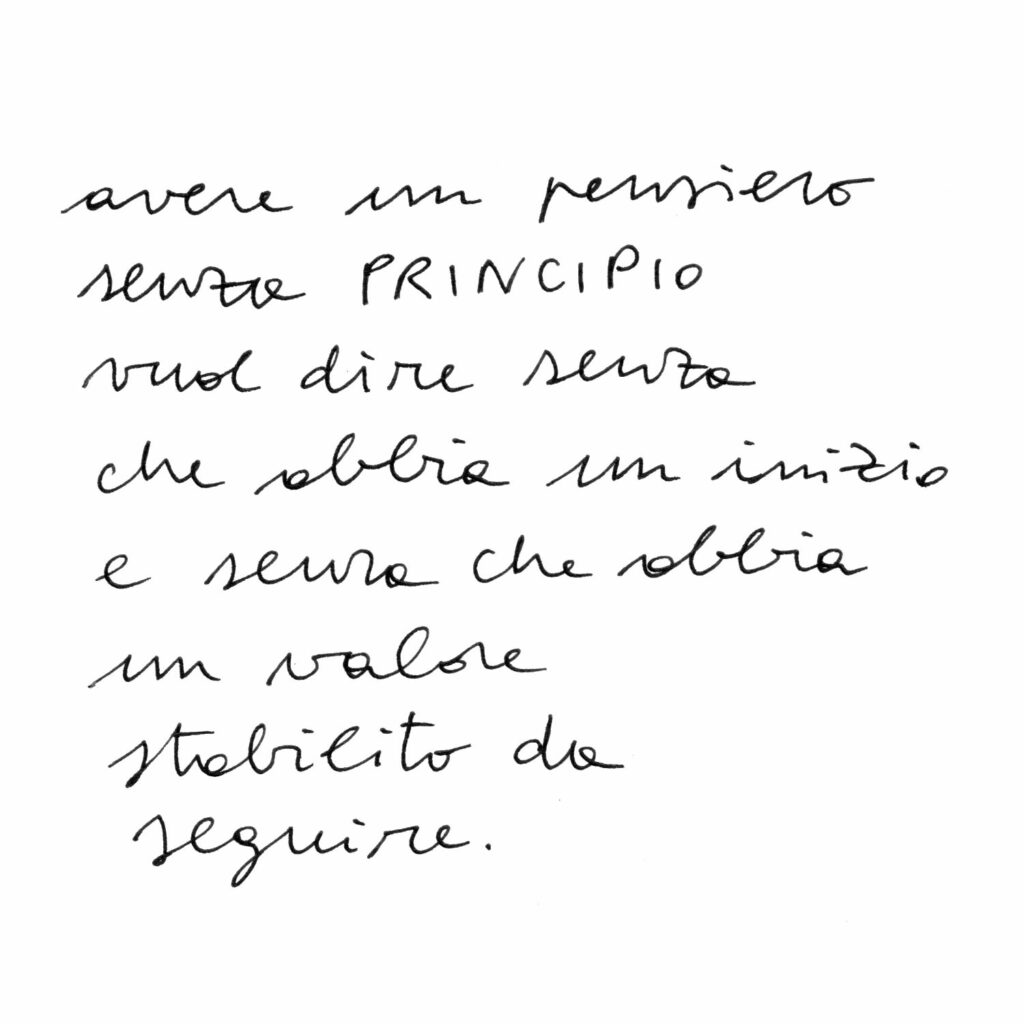 avere un pensiero
senza PRINCIPIO
vuol dire senza
che abbia un inizio
e senza che abbia
un valore
stabilito da
seguire.